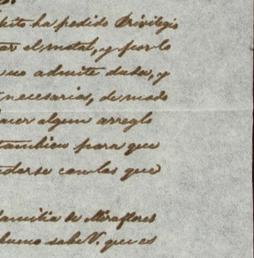 ha pedido Privilegio
el metal, y por lo
no admite duda, y
necesarias, de modo
hacer algun arreglo
tambien para que
con los que
familia de Miraflores
bueno sabe V. que es